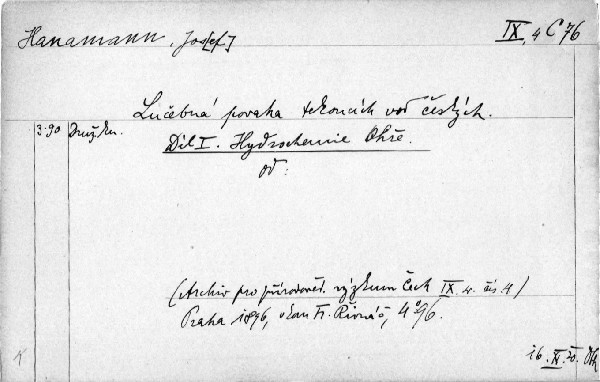 Hanamann, Jos[ef]
IX, 4 C 76
Lučebná povaha tekoucích vod českých.
3·90 Druž. kn. Díl I. Hydrochemie Ohře.
od:
(Archiv pro přírodověd. výzkum Čech IX. čís. 4)
Praha 1896, Fr. Řivnáč, 4°
16.